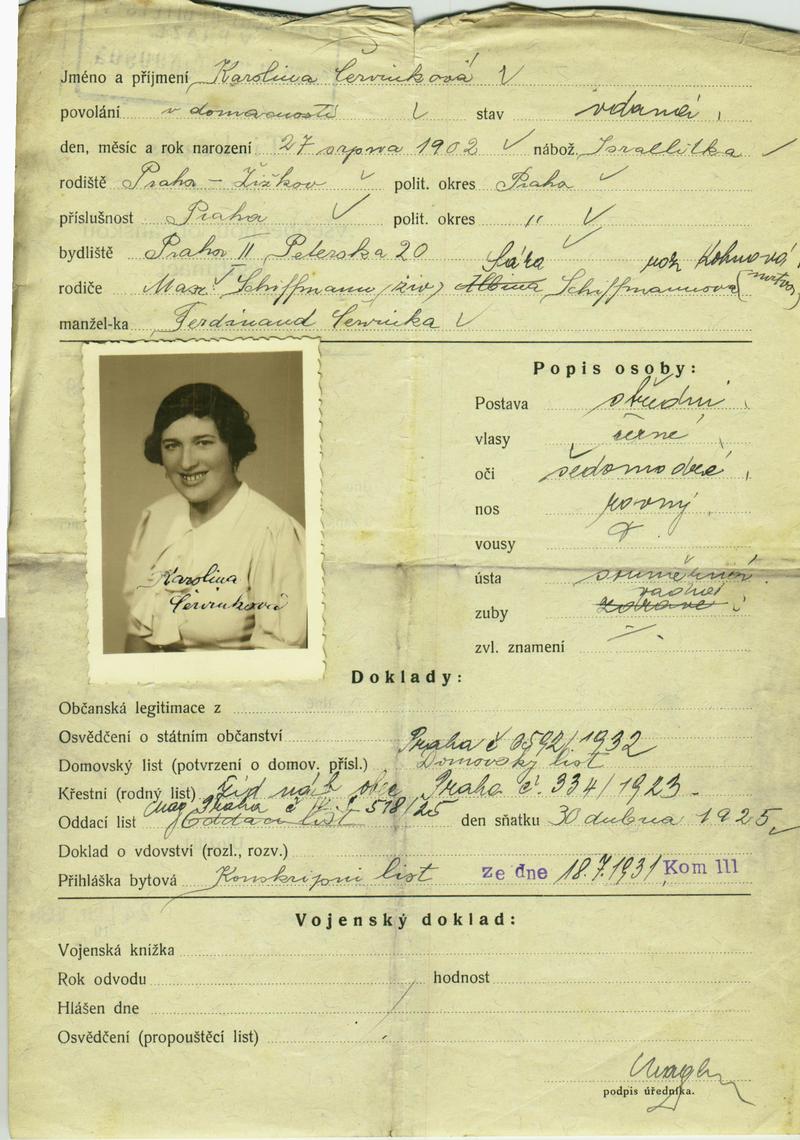 Jméno a příjmení Karolina Červinková
povolání v domácnosti stav vdaná
den, měsíc a rok narození 27 srpna 1902 nábož. Israelitka
rodiště Praha – Žižkov polit. okres Praha
příslušnost Praha polit. okres "
bydliště Praha II Peterska 20
Sára roz Kohnová
rodiče Max. Schiffmann (živ) Albina Schiffmannova (mrtva)
manžel-ka Ferdinand Červinka
Popis osoby:
Postava střední
vlasy černé
oči šedomodré
nos rovný
vousy
ústa souměrná
vadné
zuby zdravé
zvl. znamení —
Karolina
Červinková
Doklady:
Občanská legitimace z
Osvědčení o státním občanství
Praha č 3592/1932
Domovský list (potvrzení o domov. přísl.) Domovský list
Křestní (rodný list) Žid náb obec Praha č. 334/1923.
Mag. Praha č 518/25
Oddací list Oddací list den sňatku 30 dubna 1925
Doklad o vdovství (rozl., rozv.)
Přihláška bytová Konskripní list ze dne 18.7.1931 Kom III
Vojenský doklad:
Vojenská knížka
Rok odvodu hodnost
Hlášen dne
Osvědčení (propouštěcí list)
podpis úředníka.